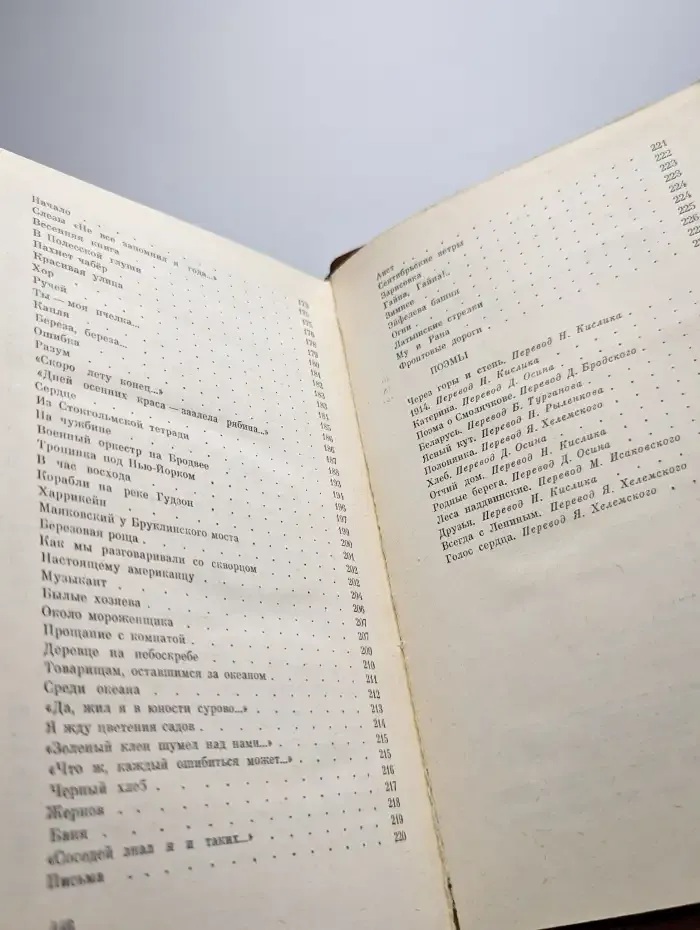 Начало
Слезы «Не все запомнил я года...» 173
Весенняя книга 175
В Полесской глуши 175
Пахнет чабёр 176
Красивая улица 178
Хор 179
Ручей 180
Ты — моя пчелка... 181
Капли 182
Береза, береза... 183
Ошибка 183
Разум 184
«Скоро лету конец...» 185
«Дней осенних краса — заалела рябина...» 185
Сердце 186
Из Стокгольмской тетради 186
На чужбине 187
Военный оркестр на Бродвее 188
Тропинка под Нью-Йорком 193
В час восхода 194
Корабли на реке Гудзон 196
Харрикейн 197
Маяковский у Бруклинского моста 199
Березовая роща 200
Как мы разговаривали со скворцом 201
Настоящему американцу 202
Музыкант 202
Былые хозяева 204
Около мороженщика 206
Прощание с комнатой 207
Деревце на небоскребе 207
Товарищам, оставшимся за океаном 209
Среди океана 210
«Да, жил я в юности сурово...» 211
Я жду цветения садов 212
«Зеленый клен шумел над нами...» 213
«Что ж, каждый ошибиться может...» 214
Черный хлеб 215
Жернов 215
Баня 216
«Соседей знал я и таких...» 217
Письма 218
219
220
Аист 221
Сентябрьские ветры 222
Зарисовка 223
Гайня, Гайна!.. 223
Зимнее 224
Эйфелева башня 224
Огни 225
Латышские стрелки 226
Му и Рана
Фронтовые дороги
ПОЭМЫ
Через горы и степь. Перевод Н. Кислика
1914. Перевод Н. Кислика
Катерина. Перевод Д. Осина
Поэма о Смолячкове. Перевод Д. Бродского
Беларусь. Перевод Б. Турганова
Ясный кут. Перевод П. Рыленкова
Половинка. Перевод Я. Хелемского
Хлеб. Перевод Д. Осина
Отчий дом. Перевод Н. Кислика
Родные берега. Перевод Д. Осина
Леса наддвинские. Перевод М. Исаковского
Друзья. Перевод Н. Кислика
Всегда с Лениным. Перевод Я. Хелемского
Голос сердца. Перевод Я. Хелемского